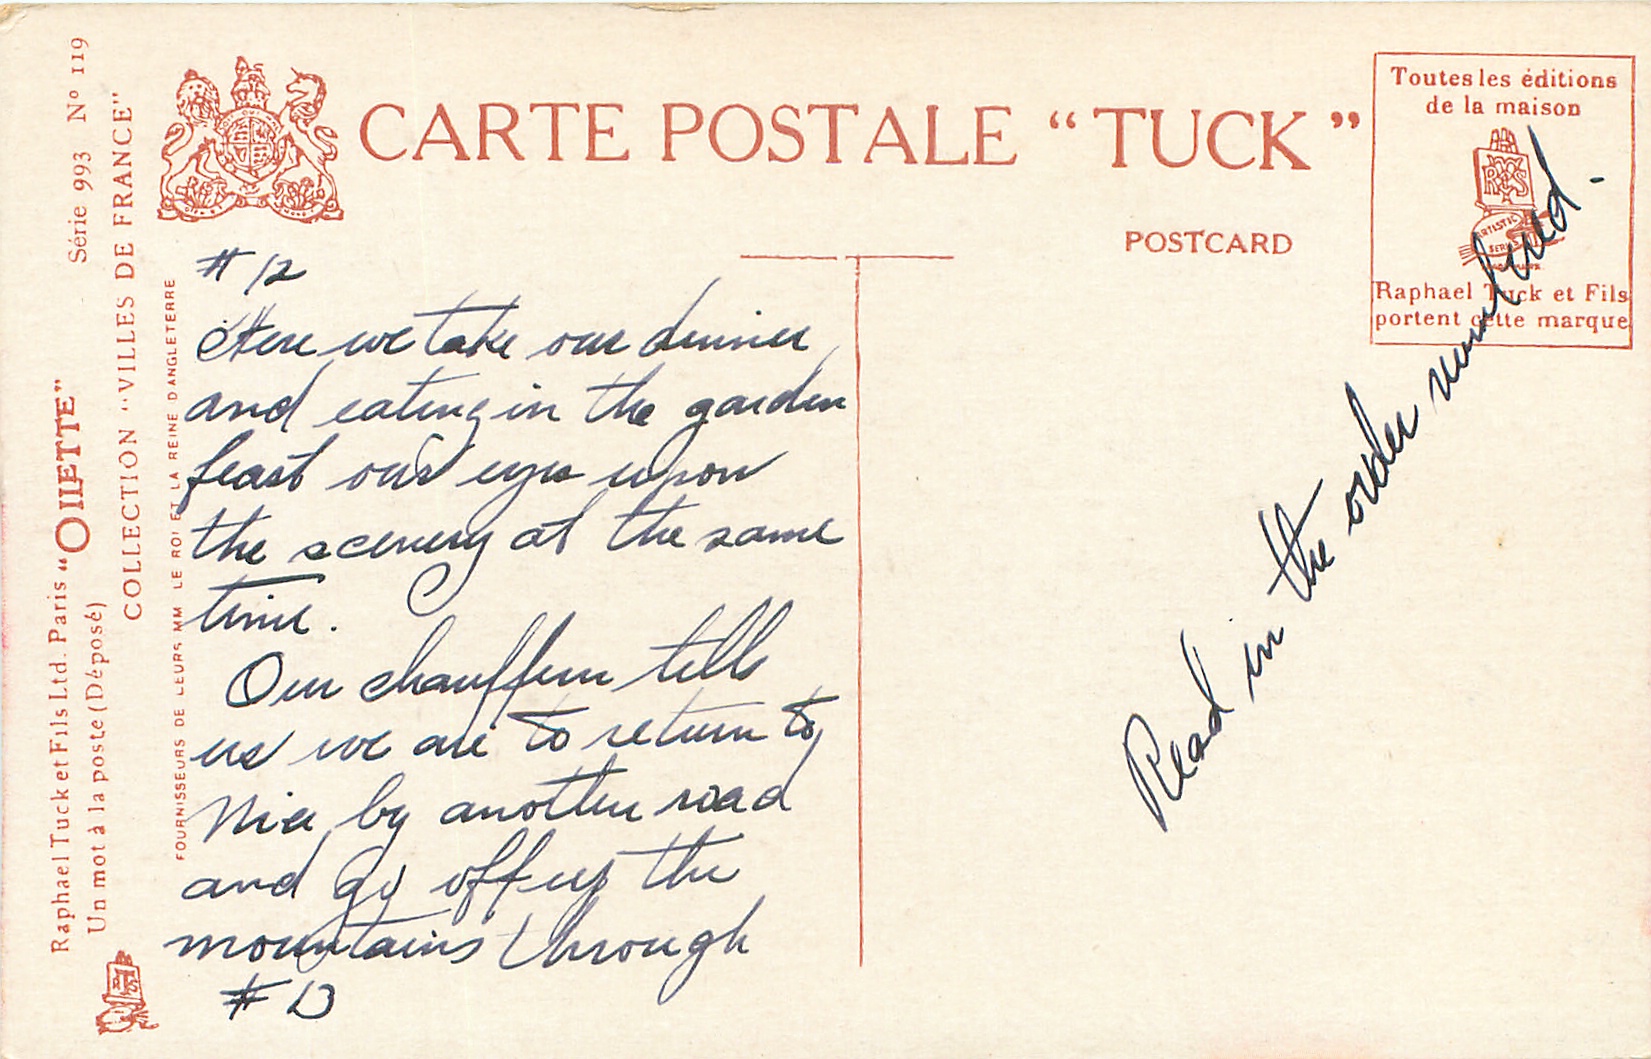 Série 993 Nº 119
COLLECTION "VILLES DE FRANCE"
Raphael Tuck et Fils Ltd. Paris "OILETTE"
Un mot à la poste (Déposé)
FOURNISSEURS DE LEURS MM LE ROI ET LA REINE D'ANGLETERRE
CARTE POSTALE "TUCK"
POSTCARD
Toutes les éditions
de la maison
ARTISTIC
SERIES
Raphael Tuck et Fils
portent cette marque
# 12
Here we take our dinner
and eating in the garden
feast our eyes upon
the scenery at the same
time.
Our chauffeur tells
us we are to return to
Nice by another road
and go off up the
mountains through
# 13
Read in the order numbered.